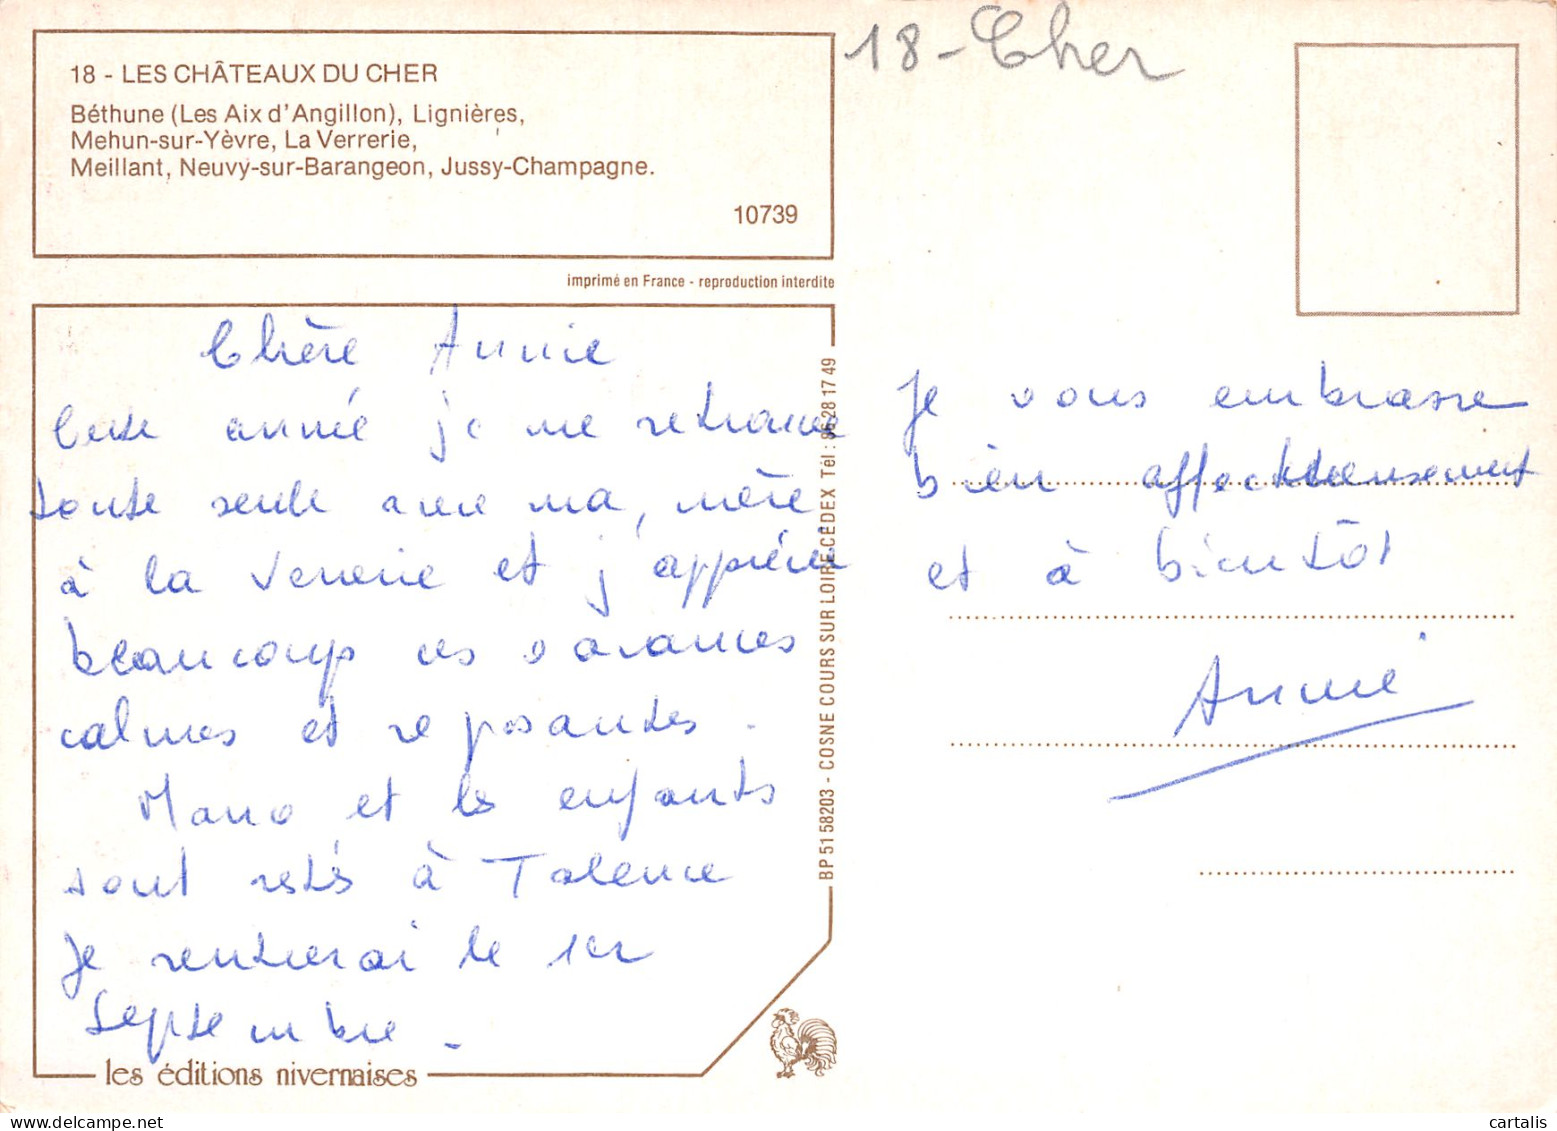 18 - LES CHÂTEAUX DU CHER
Béthune (Les Aix d'Angillon), Lignières,
Mehun-sur-Yèvre, La Verrerie,
Meillant, Neuvy-sur-Barangeon, Jussy-Champagne.
10739
imprimé en France - reproduction interdite
18 - Cher
Chère Annie
Cette année je me retrouve
toute seule avec ma mère
à la Verrerie et j'apprécie
beaucoup ces vacances
calmes et reposantes.
Mano et les enfants
sont restés à Talence
Je rentrerai le 1er
Septembre.
les éditions nivernaises
BP 51 58203 - COSNE COURS SUR LOIRE CEDEX Tél : 86 28 17 49
Je vous embrasse
bien affectueusement
et à bientôt
Annie
cartalis